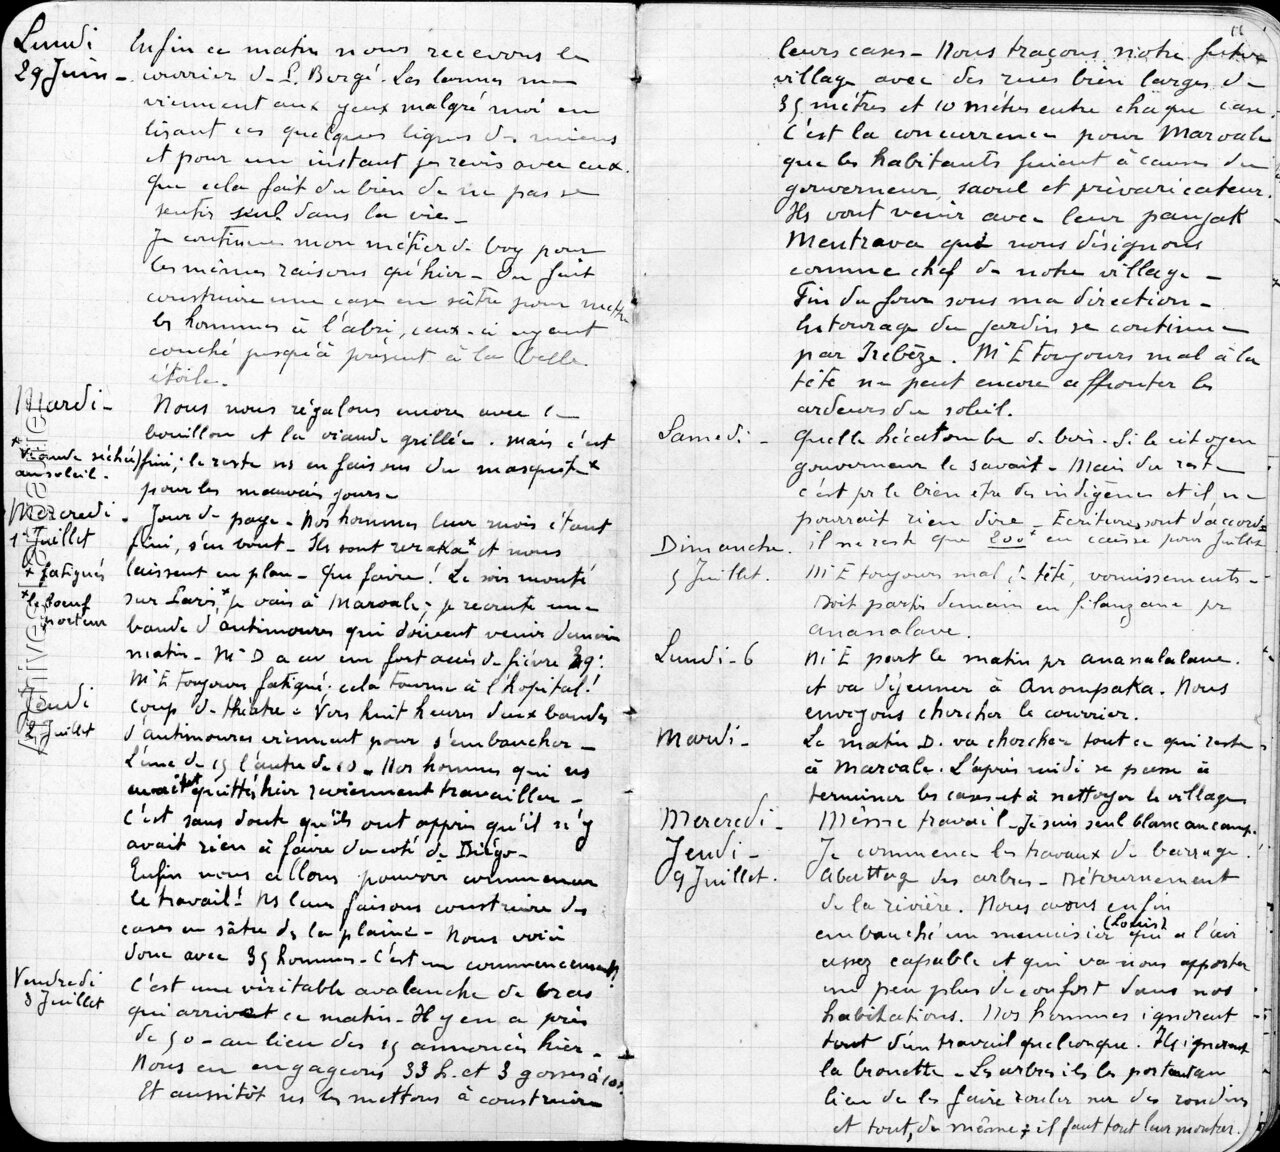 Lundi
29 Juin -
Enfin ce matin nous recevons le
courrier de L. Borgé. Les larmes me
viennent aux yeux malgré moi en
lisant ces quelques lignes des miens
et pour un instant je revis avec eux.
Que cela fait du bien de ne pas se
sentir seul dans la vie -
Je continue mon métier de boy pour
les mêmes raisons qu'hier - On fait
construire une case en sâtre pour mettre
les hommes à l'abri, ceux-ci ayant
couché jusqu'à présent à la belle
étoile.
Mardi -
Nous nous régalons encore avec le
bouillon et la viande grillée. Mais c'est
* viande séchée
au soleil.
fini, le reste ns en faisons du masquite*
pour les mauvais jours -
Mercredi -
1er Juillet
Jour de paye - Nos hommes leur mois étant
fini, s'en vont - Ils sont reraka* et nous
* fatigués
laissent en plan - Que faire! Le soir monté
* le boeuf
porteur
sur Paris*, je vais à Maroale; je recrute une
bande d'antimoures qui doivent venir demain
matin - Mr D a eu un fort accès de fièvre 39°!
Mr E toujours fatigué. cela tourne à l'hopital!
Jeudi
2 Juillet
Coup de théatre - Vers huit heures deux bandes
d'antimoures viennent pour s'embaucher -
L'une de 15 l'autre de 10 - Nos hommes qui ns
avait quittés hier reviennent travailler -
C'est sans doute qu'ils ont appris qu'il n'y
avait rien à faire du coté de Diégo -
Enfin nous allons pouvoir commencer
le travail! Ns leur faisons construire des
cases en sâtre ds la plaine - Nous voici
donc avec 35 hommes - C'est un commencement!
Vendredi
3 Juillet
C'est une véritable avalanche de bras
qui arrivent ce matin - Il y en a près
de 50 - au lieu des 15 annoncés hier -
Nous en engageons 33 h. et 3 gosses à 10f.
Et aussitôt ns les mettons à construire
leurs cases - Nous traçons notre futur
village avec des rues bien larges de
35 mètres et 10 mètres entre chaque case.
C'est la concurrence pour Maroale
que les habitants fuient à cause du
gouverneur, saoul et prévaricateur.
Ils vont venir avec leur panjak
Mentrava qui nous désignons
comme chef de notre village -
Fin du four sous ma direction -
Entourage du jardin se continue
par Irebèze. Mr E toujours mal à la
tête ne peut encore affronter les
ardeurs du soleil.
Samedi -
Quelle hécatombe de bois. Si le citoyen
gouverneur le savait - Mais du reste
c'est pr le bien etre des indigènes et il ne
pourrait rien dire - Ecritures sont d'accord =
il ne reste que 200f en caisse pour Juillet
Dimanche.
5 Juillet.
Mr E toujours mal à tête, vomissements -
Doit partir demain en filanzane pr
ananalave.
Lundi - 6
Mr E part le matin pr ananalalave.
et va déjeuner à Anompaka. Nous
envoyons chercher le courrier.
Mardi -
Le matin D. va chercher tout ce qui reste
à Maroale. L'après midi se passe à
terminer les cases et à nettoyer le village
Mercredi -
Même travail - Je suis seul blanc au camp.
Jeudi -
9 Juillet.
Je commence les travaux de barrage.
Abattage des arbres - Détournement
de la rivière. Nous avons enfin
embauché un menuisier (Louis) qui a l'air
assez capable et qui va nous apporter
un peu plus de confort dans nos
habitations. Nos hommes ignorent
tout d'un travail quelconque. Ils ignorent
la brouette - Les arbres ils les portent au
lieu de les faire rouler sur des rondins
et tout, de même; il faut tout leur montrer.